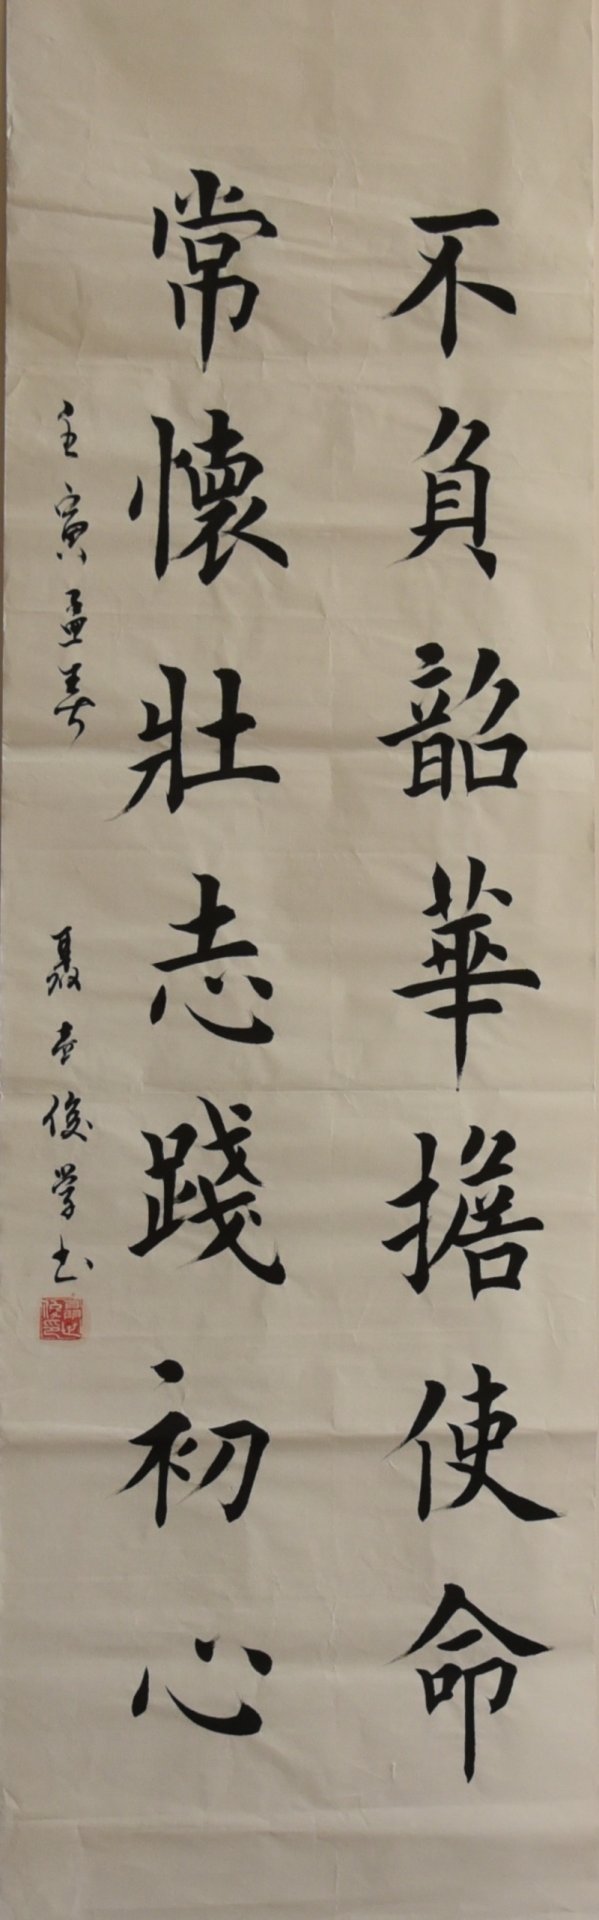 不負韶華擔使命
常懷壯志踐初心
壬寅孟春
俊学书